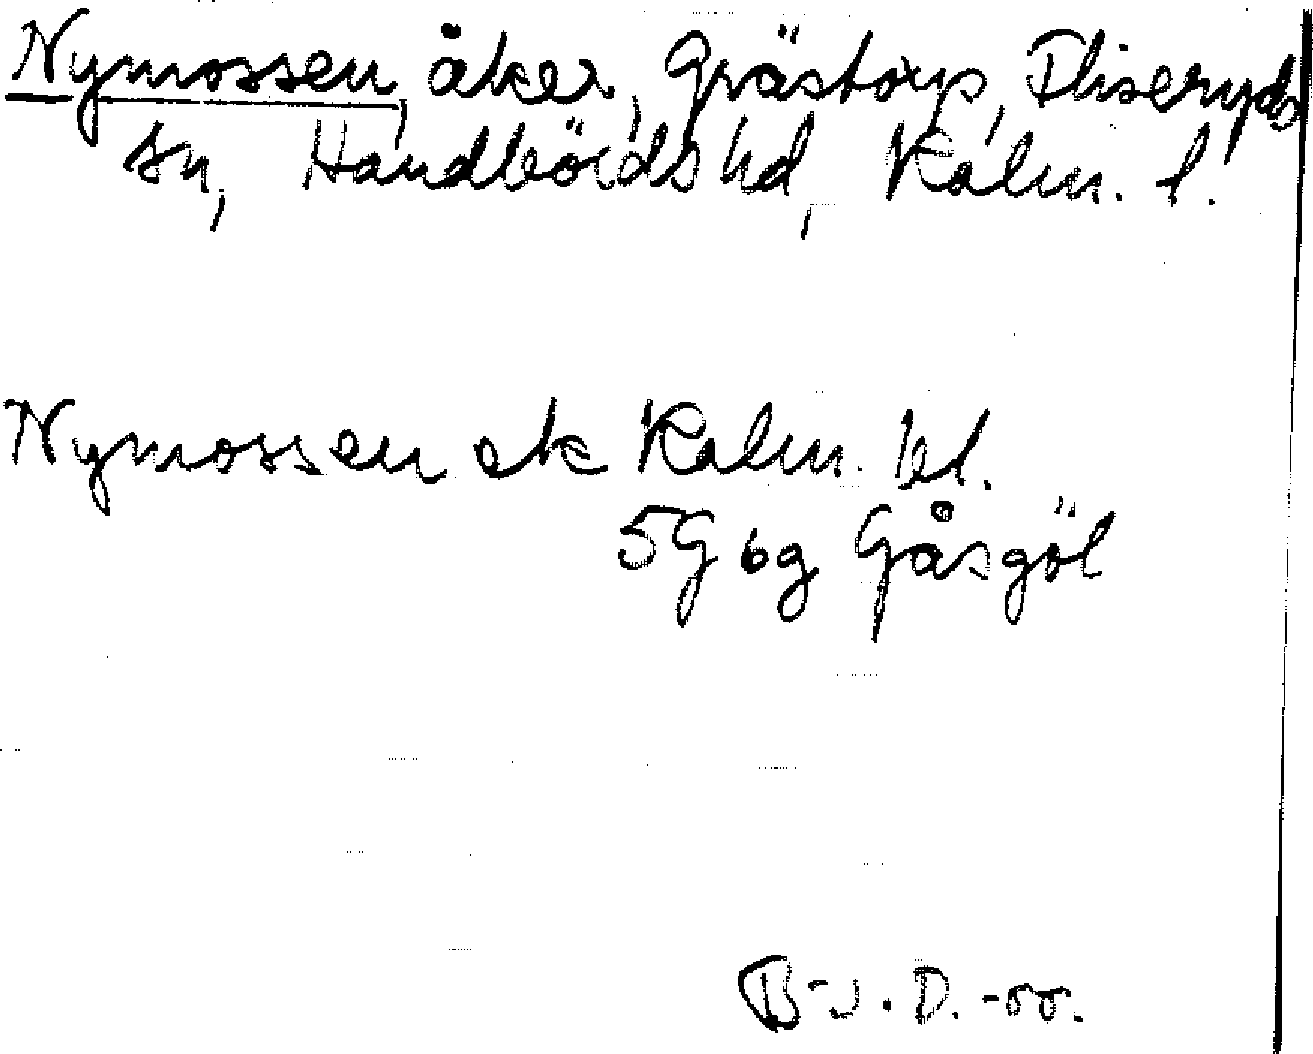 Nymossen, åker, Grästorp, Fliseryds
sn, Handbörds hd, Kalm. l.
Nymossen ek Kalm. bl.
5G 6g Gåsgöl
B-J. D. -55.